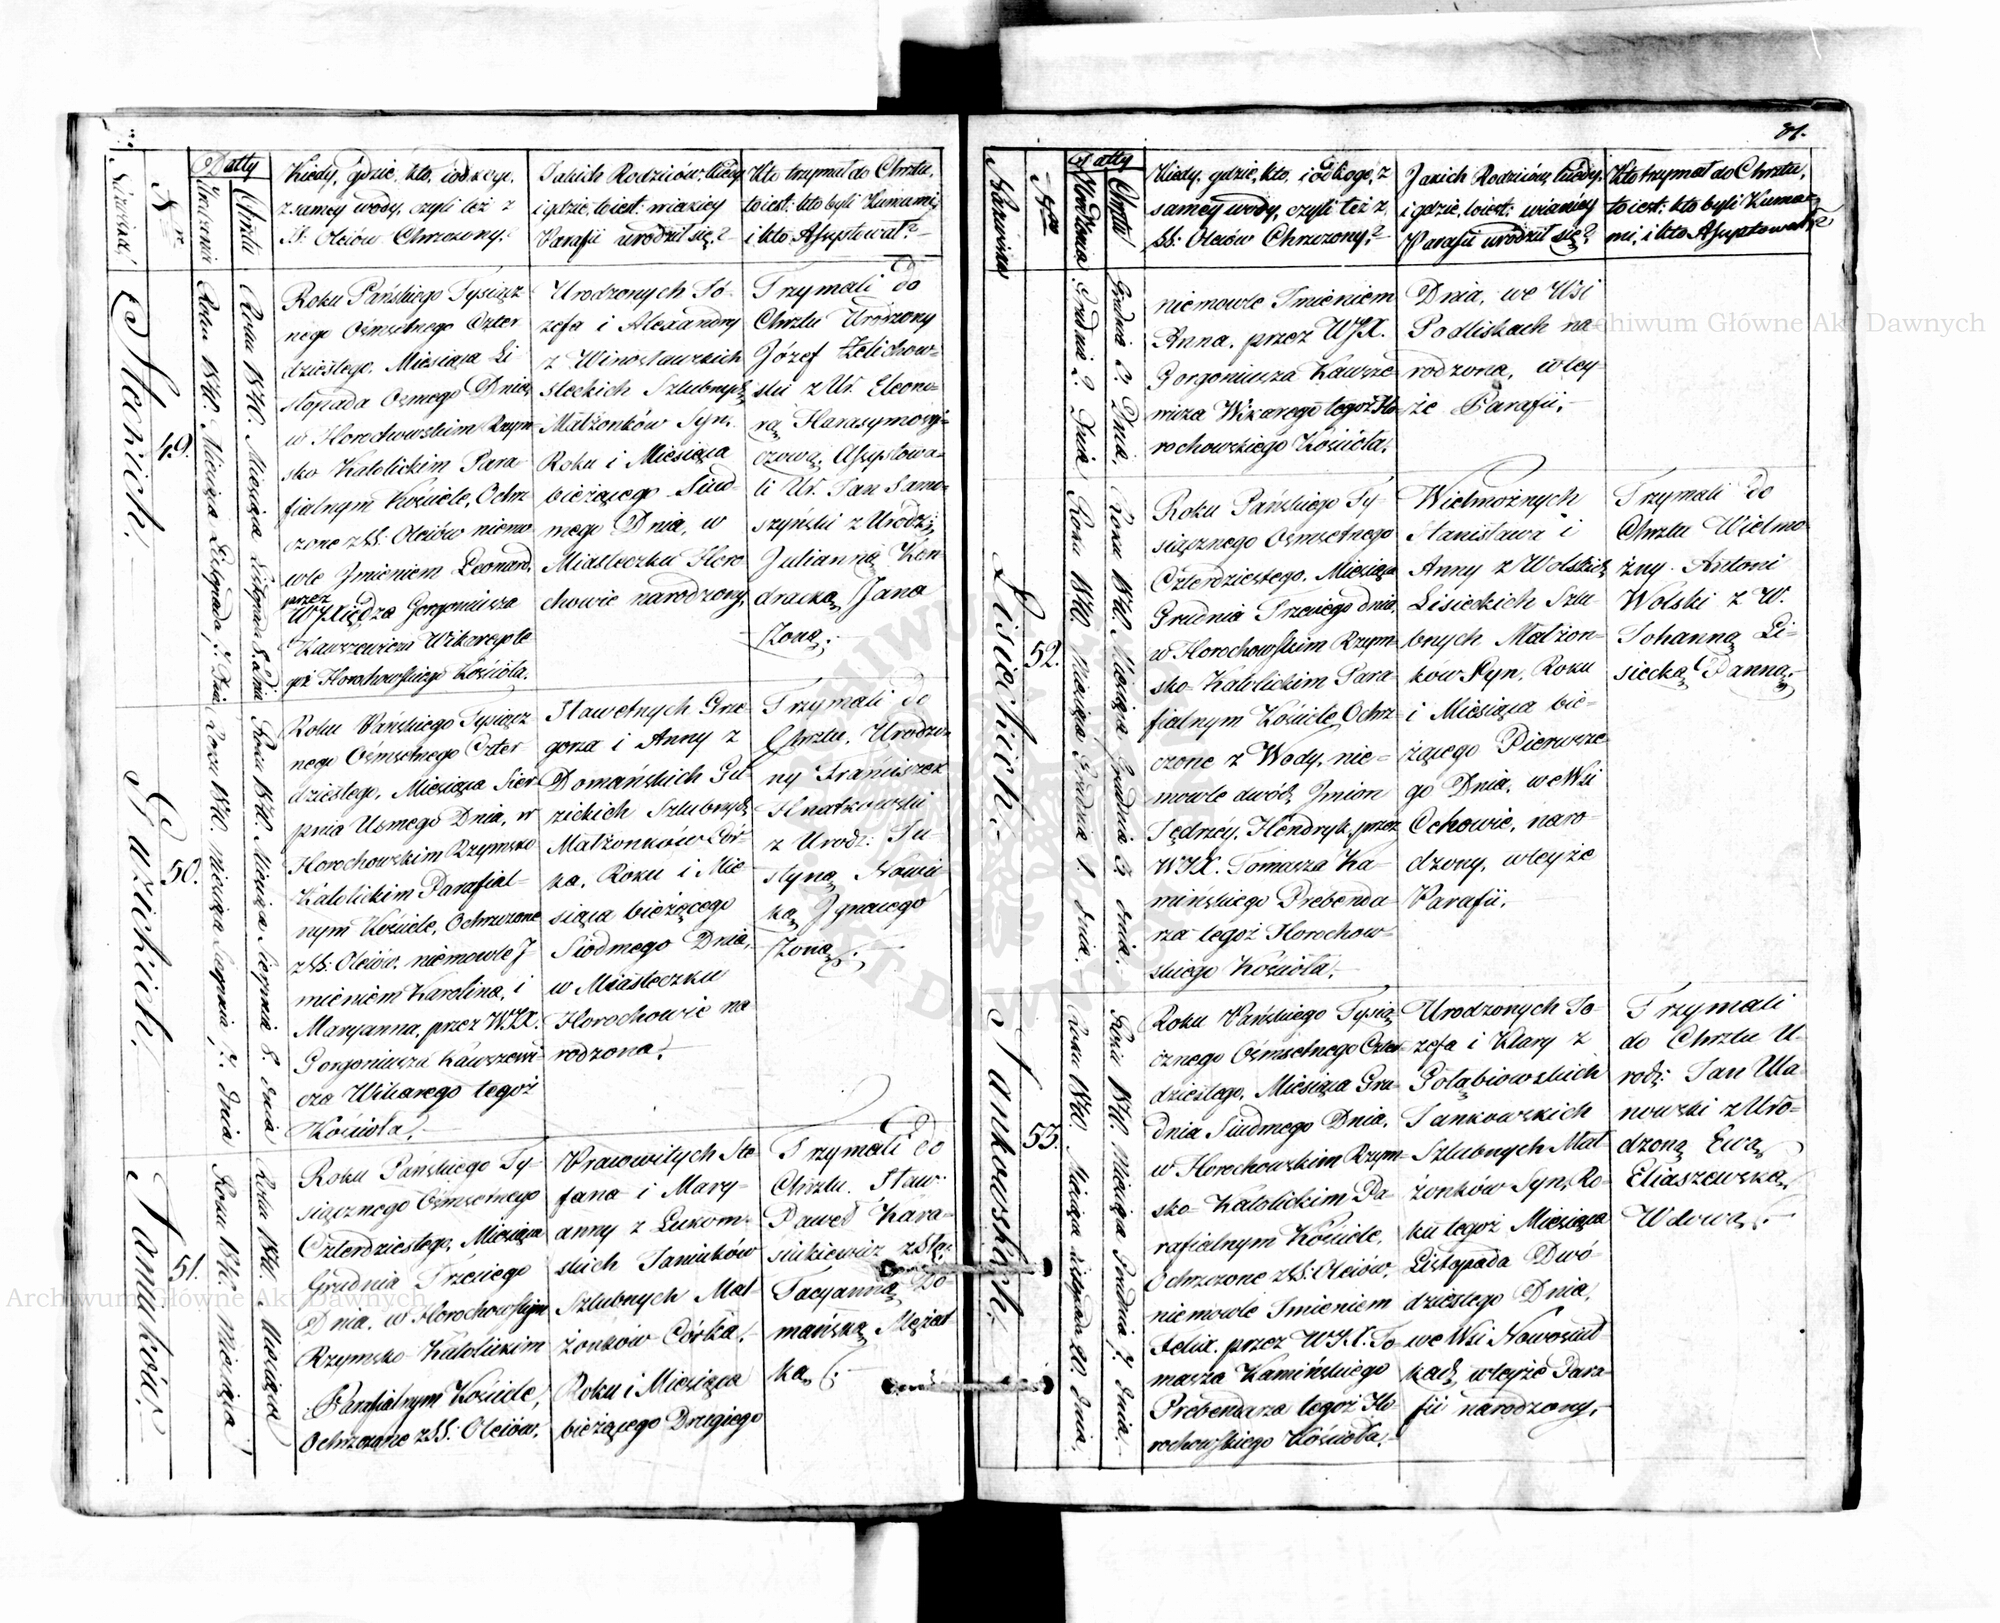 Nazwiska
N=re
Datty
Urodzenia
Chrztu
Kiedy, gdzie, kto, i od kogo,
z samey wody, czyli też z
SS: Oleiów Chrzczony?
Jakich Rodziców, kiedy
i gdzie, to iest: w iakiey
Parafii urodził się?
Kto trzymał do Chrztu,
to iest: kto byli Kumami,
i kto Assystował?
Steckich.
49.
Roku 1840. Miesiąca Listopada, 7. Dnia
Roku 1840. Miesiąca Listopada 8. Dnia
Roku Pańskiego Tysiącz
nego Ośmsetnego Czter
dziestego, Miesiąca Li
stopada Osmego Dnia,
w Horochowskim Rzym
sko Katolickim Para-
fialnym Kościele, Ochrz
czone z SS: Oleiów niemo
wle Jmieniem Leonard,
przez
WJXiędza Gorgoniusza
Kawszewicza Wikarego te
goż Horochowskiego Kościoła.
Urodzonych Jó-
zefa i Alexandry
z Winosławskich
Steckich Szlubnych
Małżonków Syn,
Roku i Miesiąca
bieżącego Siod-
mego Dnia, w
Miasteczku Horo
chowie narodzony,
Trzymali do
Chrztu Urodzony
Józef Żelichow-
ski z Ur. Eleono-
rą Harasymowi-
czową, Assystowa-
li Ur. Jan Sam-
szyński z Urodz:
Julianną Kon
dracką, Jana
Żoną.
Guzickich.
50.
Roku 1840. Miesiąca Sierpnia 7. Dnia
Roku 1840. Miesiąca Sierpnia 8. Dnia
Roku Pańskiego Tysiącz
nego Ośmsetnego Czter
dziestego, Miesiąca Sier
pnia Usmego Dnia, w
Horochowskim Rzymsko
Katolickim Parafial-
nym Kościele, Ochrzczone
z SS: Oleiów, niemowle J
mieniem Karolina, i
Maryanna, przez WJX.
Gorgoniusza Kawszewi
cza Wikarego tegoż
Kościoła.
Sławetnych Grze
gorza i Anny z
Domańskich Gu-
zickich Szlubnych
Małżonków Cór-
ka, Roku i Mie
siąca bieżącego
Siodmego Dnia,
w Miasteczku
Horochowie na
rodzona.
Trzymali do
Chrztu, Urodzo-
ny Franciszek
Hnatkowski
z Urodz: Ju-
styną Nowic
ką Jgnacego
Żoną.
Janiuków.
51.
Roku 1840. Miesiąca
Roku 1840. Miesiąca
Roku Pańskiego Ty-
siącznego Ośmsetnego
Czterdziestego, Miesiąca
Grudnia Trzeciego
Dnia, w Horochowskim
Rzymsko Katolickim
Parafialnym Kościele,
Ochrzczone z SS: Oleiów,
Pracowitych Ste
fana i Mary-
anny z Łukom-
skich Janiuków
Szlubnych Mał-
żonków Córka,
Roku i Miesiąca
bieżącego Drugiego
Trzymali do
Chrztu, Sław:
Paweł Kara-
sinkiewicz z Sła:
Tacyanną Do
mańską Mężat
ką.
81.
Nazwiska
Nro
Datty
Urodzenia
Chrztu
Kiedy, gdzie, kto, i od kogo, z
samey wody, czyli też z
SS: Oleiów Chrzczony?
Jakich Rodziców, kiedy,
i gdzie, to iest: w iakiey
Parafii urodził się?
Kto trzymał do Chrztu,
to iest: kto byli Kuma-
mi, i kto Assystował?
Grudnia 2. Dnia
Grudnia 3. Dnia,
niemowle Jmieniem
Anna, przez WJX.
Gorgoniusza Kawsze
wicza Wikarego tegoż Ho
rochowskiego Kościoła.
Dnia, we Wsi
Podliskach na
rodzona, w tey-
że Parafii.
Lisieckich.
52.
Roku 1840. Miesiąca Grudnia 1. dnia.
Roku 1840. Miesiąca Grudnia 3. dnia.
Roku Pańskiego Ty-
siącznego Ośmsetnego
Czterdziestego, Miesiąca
Grudnia Trzeciego dnia,
w Horochowskim Rzym-
sko Katolickim Para-
fialnym Kościele, Ochrz
czone z Wody, nie-
mowle dwóch Jmion
Jędrzey, Hendryk, przez
WJX. Tomasza Ka-
mińskiego Prebenda
rza tegoż Horochow-
skiego Kościoła.
Wielmożnych
Stanisława i
Anny z Wolskich
Lisieckich Szlu-
bnych Małżon-
ków Syn, Roku
i Miesiąca bie-
żącego Pierwsze
go Dnia, we Wsi
Ochowie, naro-
dzony, w teyże
Parafii.
Trzymali do
Chrztu Wielmo
żny Antoni
Wolski z W.
Johanną Li-
siecką Panną.
Jankowskich.
53.
Roku 1840. Miesiąca Listopada 20. Dnia,
Roku 1840. Miesiąca Grudnia 7. Dnia.
Roku Pańskiego Tysią
cznego Ośmsetnego Czter
dziestego, Miesiąca Gru-
dnia Siudmego Dnia,
w Horochowskim Rzym-
sko Katolickim Pa-
rafialnym Kościele,
Ochrzczone z SS: Oleiów,
niemowle Jmieniem
Felix, przez WJX. To
masza Kamińskiego
Prebendarza tegoż Ho-
rochowskiego Kościoła.
Urodzonych Jó-
zefa i Klary z
Gołąbiowskich
Jankowskich
Szlubnych Mał
żonków Syn, Ro-
ku tegoż Miesiąca
Listopada Dwó-
dziestego Dnia,
we Wsi Nowosiół
kach, w teyże Para
fii narodzony.
Trzymali
do Chrztu U-
rodz: Jan Ula
nowski z Uro-
dzoną Ewą
Eliaszewską,
Wdową.
Archiwum Główne Akt Dawnych
Archiwum Główne Akt Dawnych